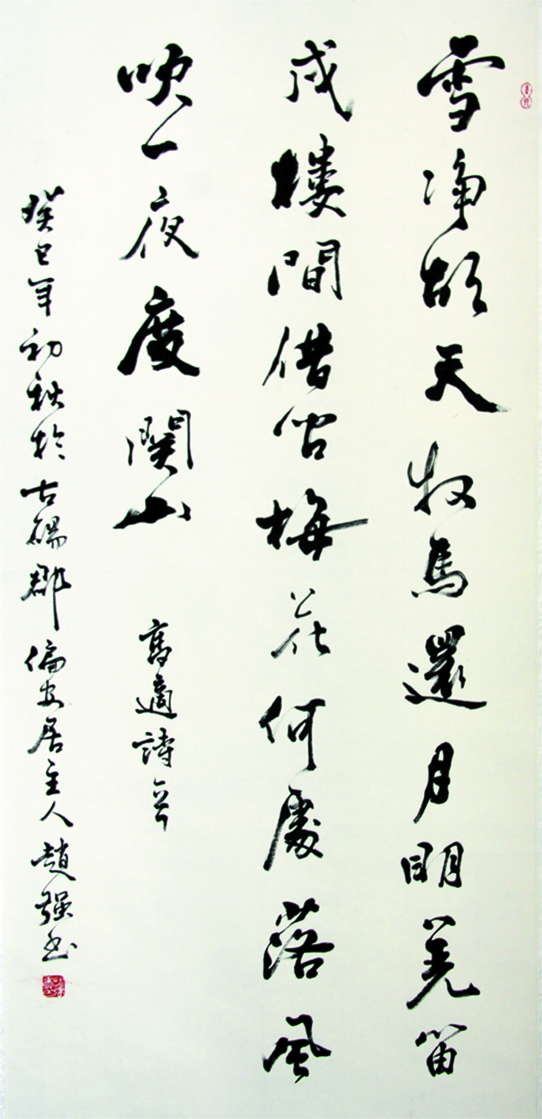 雪净胡天牧馬還月明羌笛
戍樓間借问梅花何處落風
吹一夜度關山
高適詩一首
癸巳年初秋於古碭郡偏安居主人趙强书